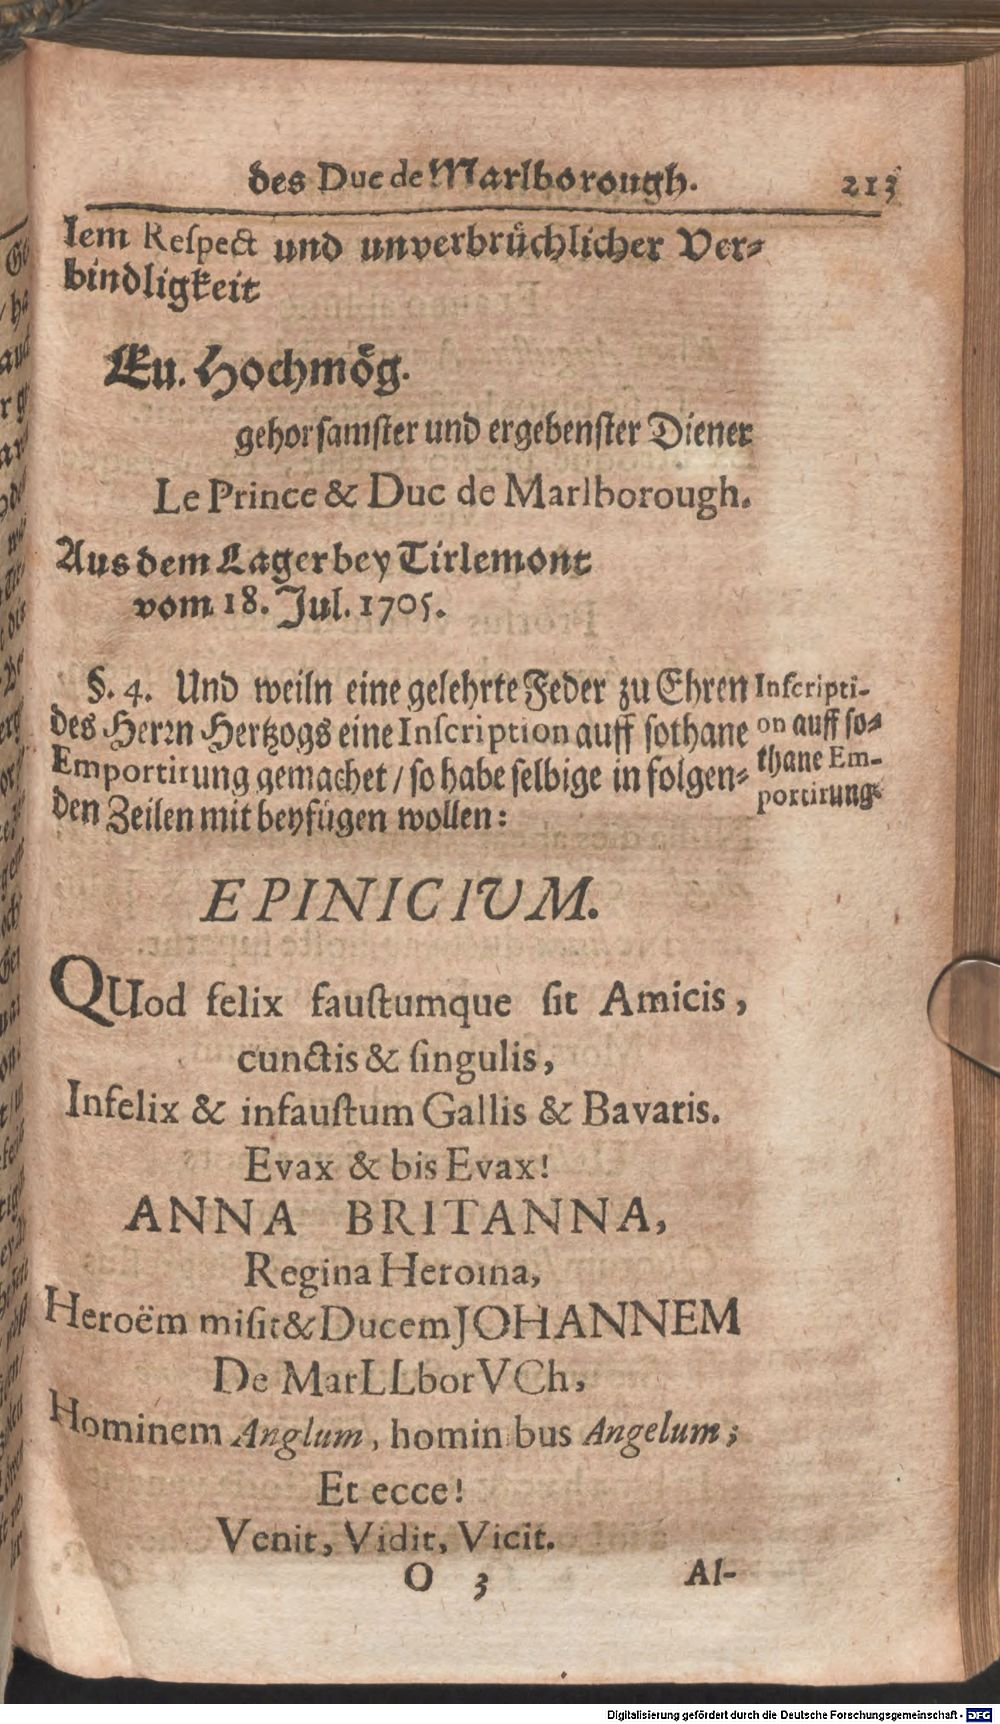 des Duc de Marlborough. 213
lem Respect und unverbrüchlicher Ver-
bindligkeit
Eu. Hochmög.
gehorsamster und ergebenster Diener
Le Prince & Duc de Marlborough.
Aus dem Lager bey Tirlemont
vom 18. Jul. 1705.
§. 4. Und weiln eine gelehrte Feder zu Ehren
des Herrn Hertzogs eine Inscription auff sothane
Emportirung gemachet / so habe selbige in folgen-
den Zeilen mit beyfügen wollen:
Inscripti-
on auff so-
thane Em-
portirung.
EPINICIUM.
QUod felix faustumque sit Amicis,
cunctis & singulis,
Infelix & infaustum Gallis & Bavaris.
Evax & bis Evax!
ANNA BRITANNA,
Regina Heroina,
Heroëm misit & Ducem JOHANNEM
De MarLLborVCh,
Hominem Anglum, homin bus Angelum;
Et ecce!
Venit, Vidit, Vicit.
O 3 Al-
Digitalisierung gefördert durch die Deutsche Forschungsgemeinschaft - DFG